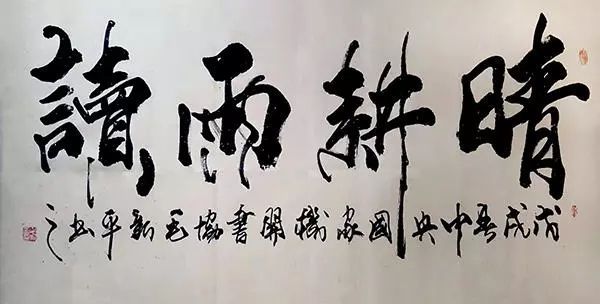 晴耕雨讀
戊戌春中央國家機關書協毛新平书之